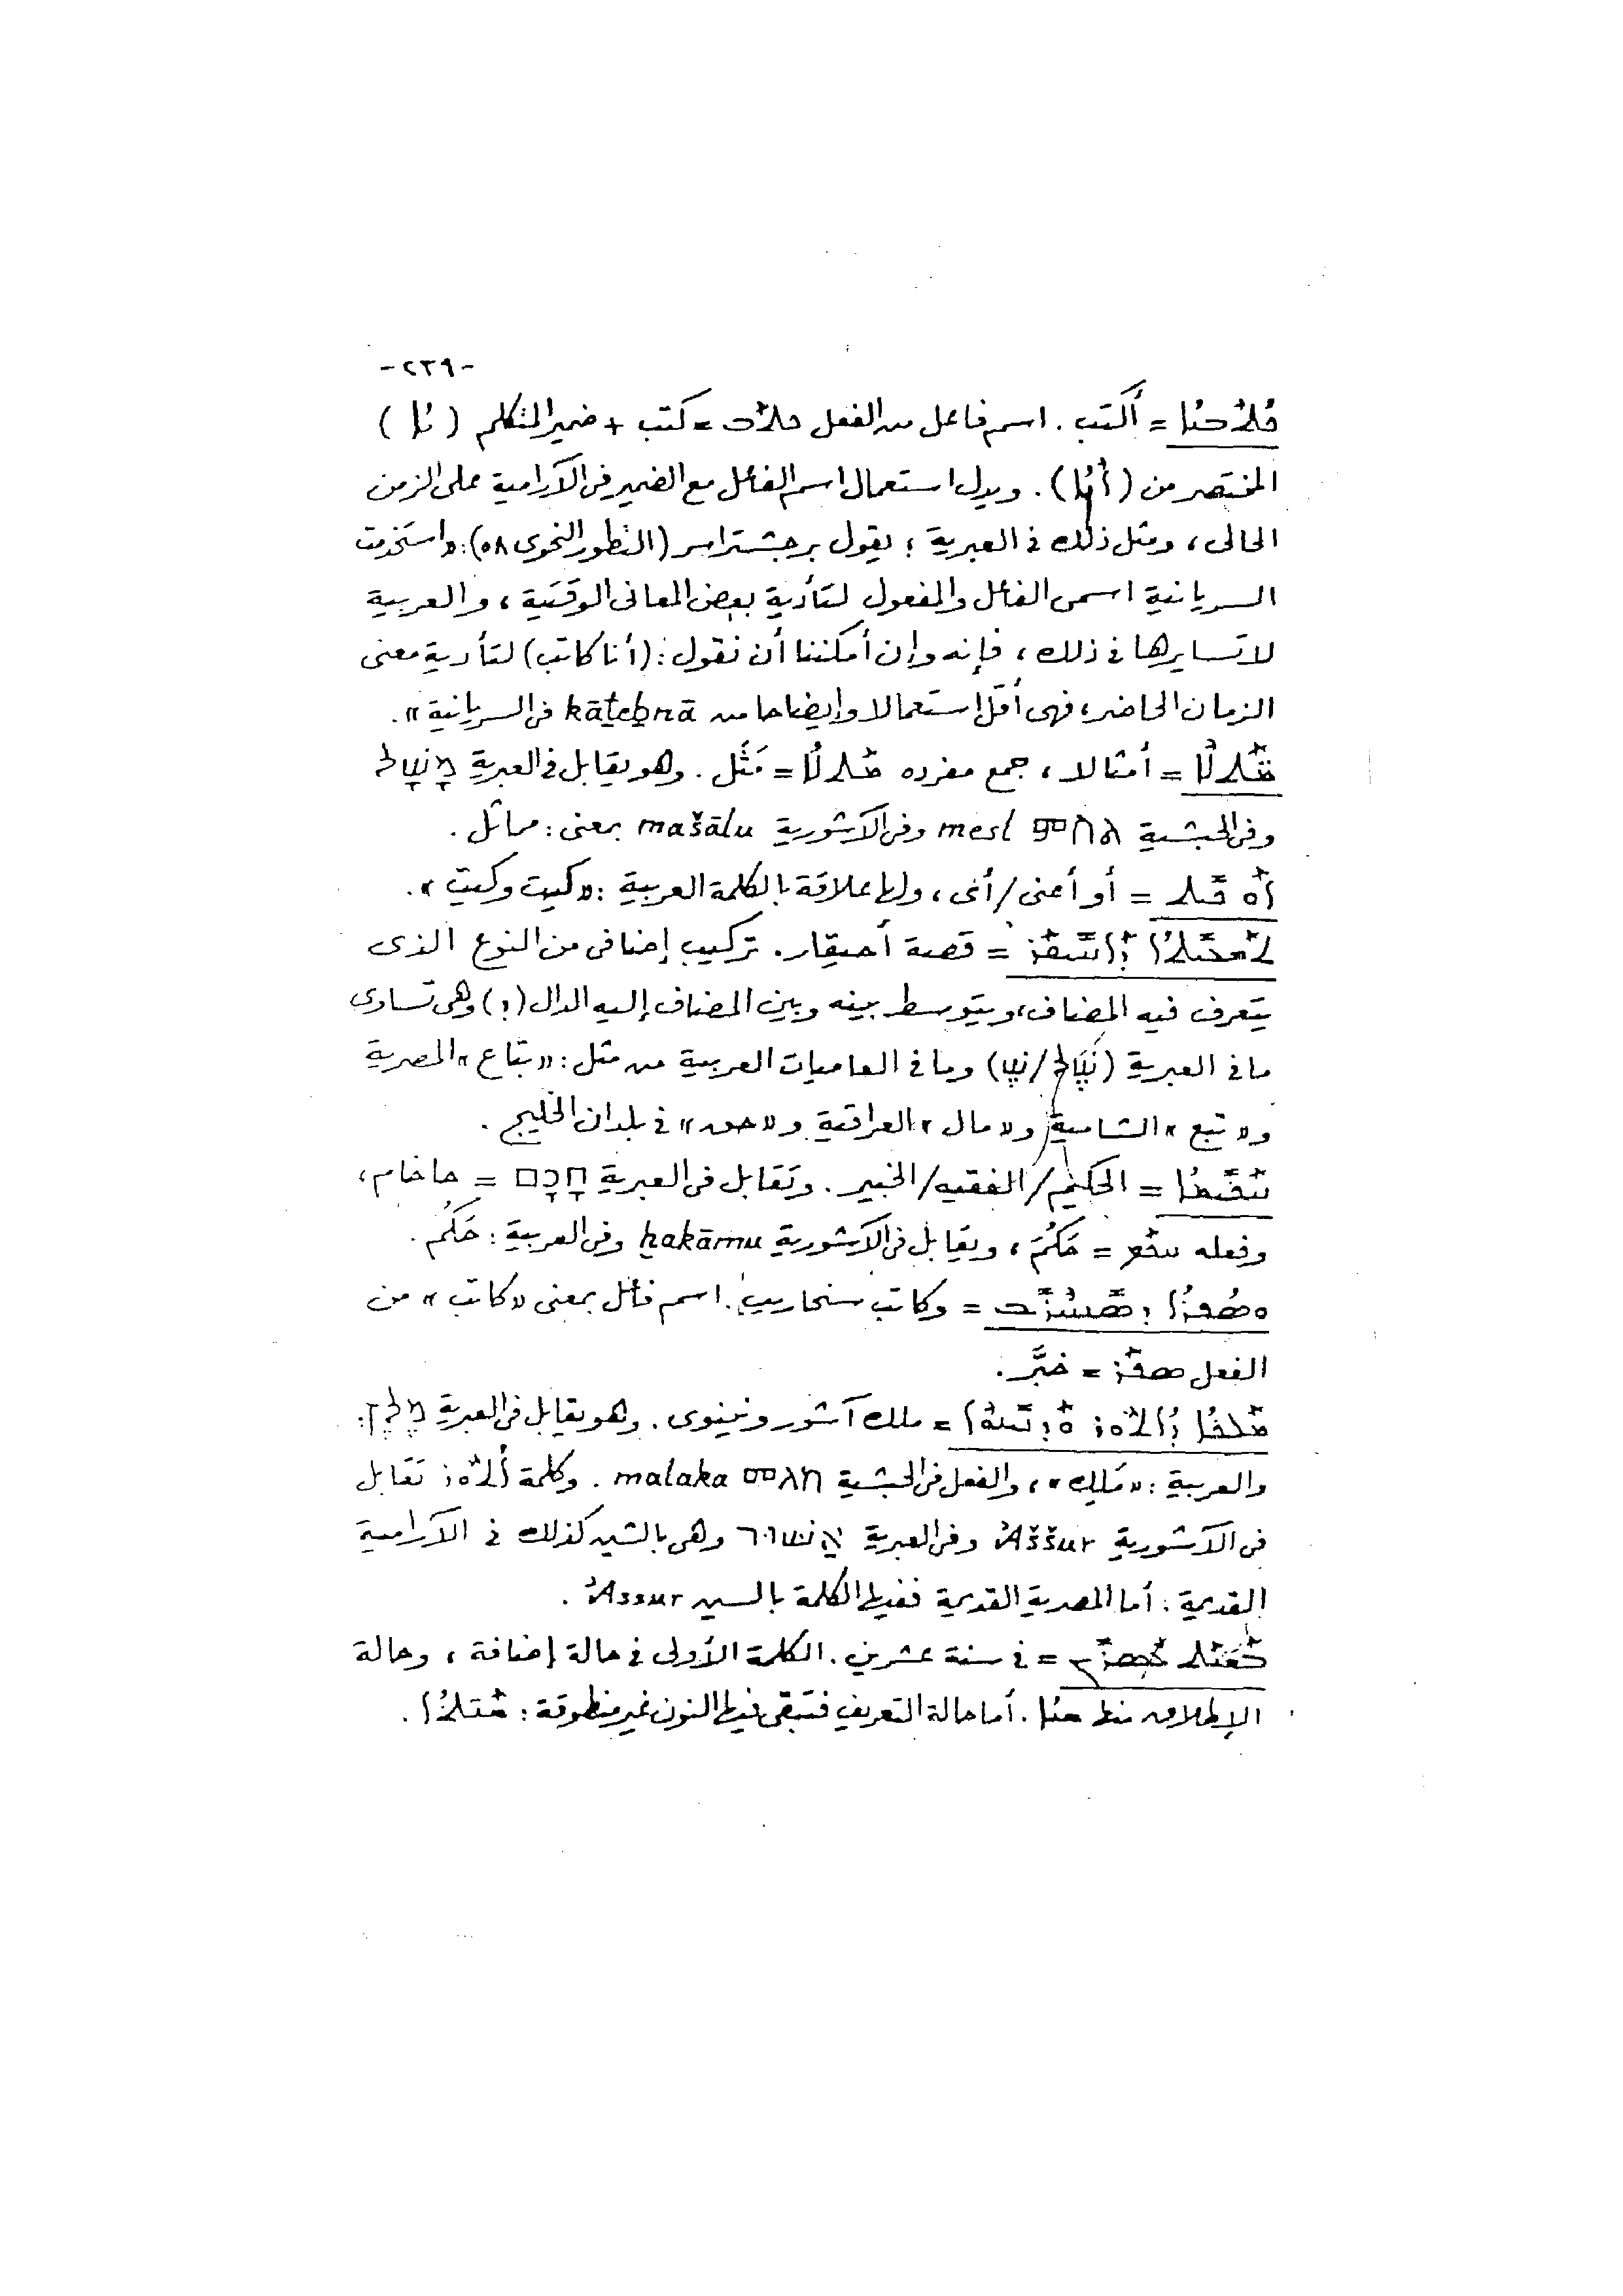 -٢٣٩-
ܟܳܬܶܒܢܳܐ = أكتب. اسم فاعل من الفعل ܟܬܰܒ = كتب + ضمير المتكلم (ܢܳܐ)
المختصر من (ܐܶܢܳܐ). ويدل استعمال اسم الفاعل مع الضمير فى الآرامية على الزمن
الحالى، ومثل ذلك فى العبرية؛ يقول برجشتراسر (التطور النحوى ٥٨): «واستخدمت
السريانية اسمى الفاعل والمفعول لتأدية بعض المعانى الوقتية، والعربية
لا تسايرها فى ذلك، فإنه وإن أمكننا أن نقول: (أنا كاتب) لتأدية معنى
الزمان الحاضر، فهى أقل استعمالا وإيضاحا من kāṯeḇnā فى السريانية».
ܡܰܬ̈ܠܶܐ = أمثالا، جمع مفرده ܡܰܬܠܳܐ = مَثَل. وهو يقابل فى العبرية מָשָׁל
وفى الحبشية መስል mesl وفى الآشورية mašālu بمعنى: مماثل.
ܐܰܘ ܟܺܝܬ = أو أعنى/أى، ولها علاقة بالكلمة العربية: «كيت وكيت».
ܬܰܫܥܺܝܬܳܐ ܕܰܐܚܺܝܩܰܪ = قصة أحيقار. تركيب إضافى من النوع الذى
يتعرف فيه المضاف، ويتوسط بينه وبين المضاف إليه الدال (ܕ) وهى تساوى
ما فى العبرية (שֶׁל/שֶׁ) وما فى العاميات العربية من مثل: «بتاع» المصرية
و«تبع» الشامية و«مال» العراقية و«حق» فى بلدان الخليج.
ܚܰܟܺܝܡܳܐ = الحكيم/الفقيه/الخبير. وتقابل فى العبرية חָכָם = حاخام،
وفعله ܚܟܰܡ = حَكُمَ، ويقابل فى الآشورية ḫakāmu وفى العربية: حَكُم.
ܘܣܳܦܪܳܐ ܕܣܰܢܚܶܪܺܝܒ = وكاتب سنحاريب. اسم فاعل بمعنى «كاتب» من
الفعل ܣܦܰܪ = خبَّر.
ܡܰܠܟܳܐ ܕܳܐܬܽܘܪ ܘܰܕܢܺܝܢܘܶܐ = ملك آشور ونينوى. وهو يقابل فى العبرية מֶלֶךְ:
والعربية: «مَلِك»، والفعل فى الحبشية መለከ malaka. وكلمة ܐܳܬܽܘܪ تقابل
فى الآشورية ʾAššur وفى العبرية אַשּׁוּר وهى بالشين كذلك فى الآرامية
القديمة. أما المصرية القديمة ففيها الكلمة بالسين ʾAssur.
ܒܰܫܢܰܬ ܥܶܣܪܺܝܢ = فى سنة عشرين. الكلمة الأولى فى حالة إضافة، وحالة
الإطلاق منها ܫܢܳܐ. أما حالة التعريف فتبقى فيها النون غير منطوقة: ܫܰܢ̱ܬܳܐ.